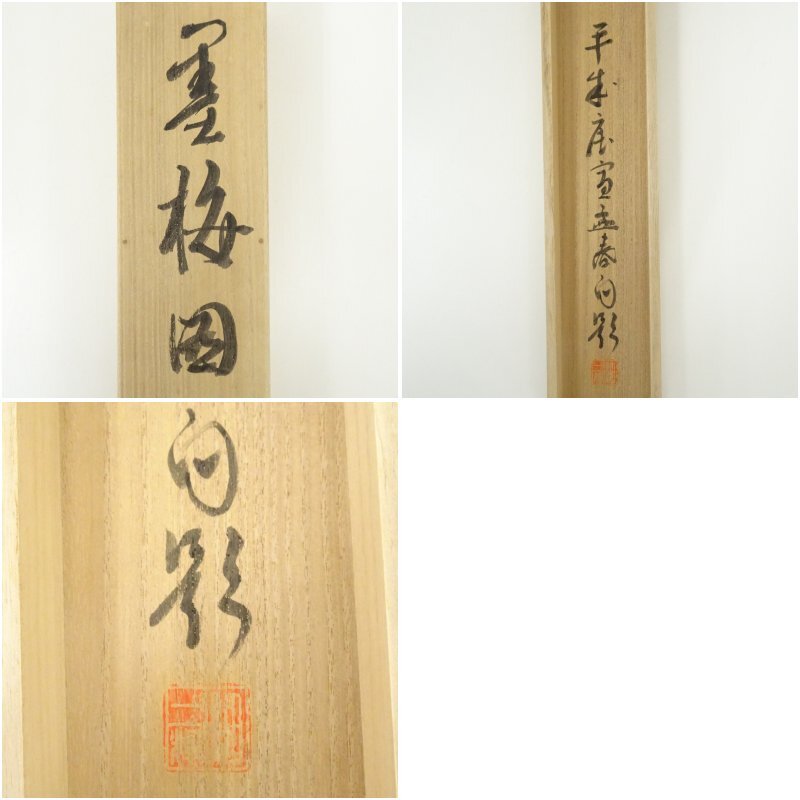 墨梅図
平成庚寅孟春白影
白影